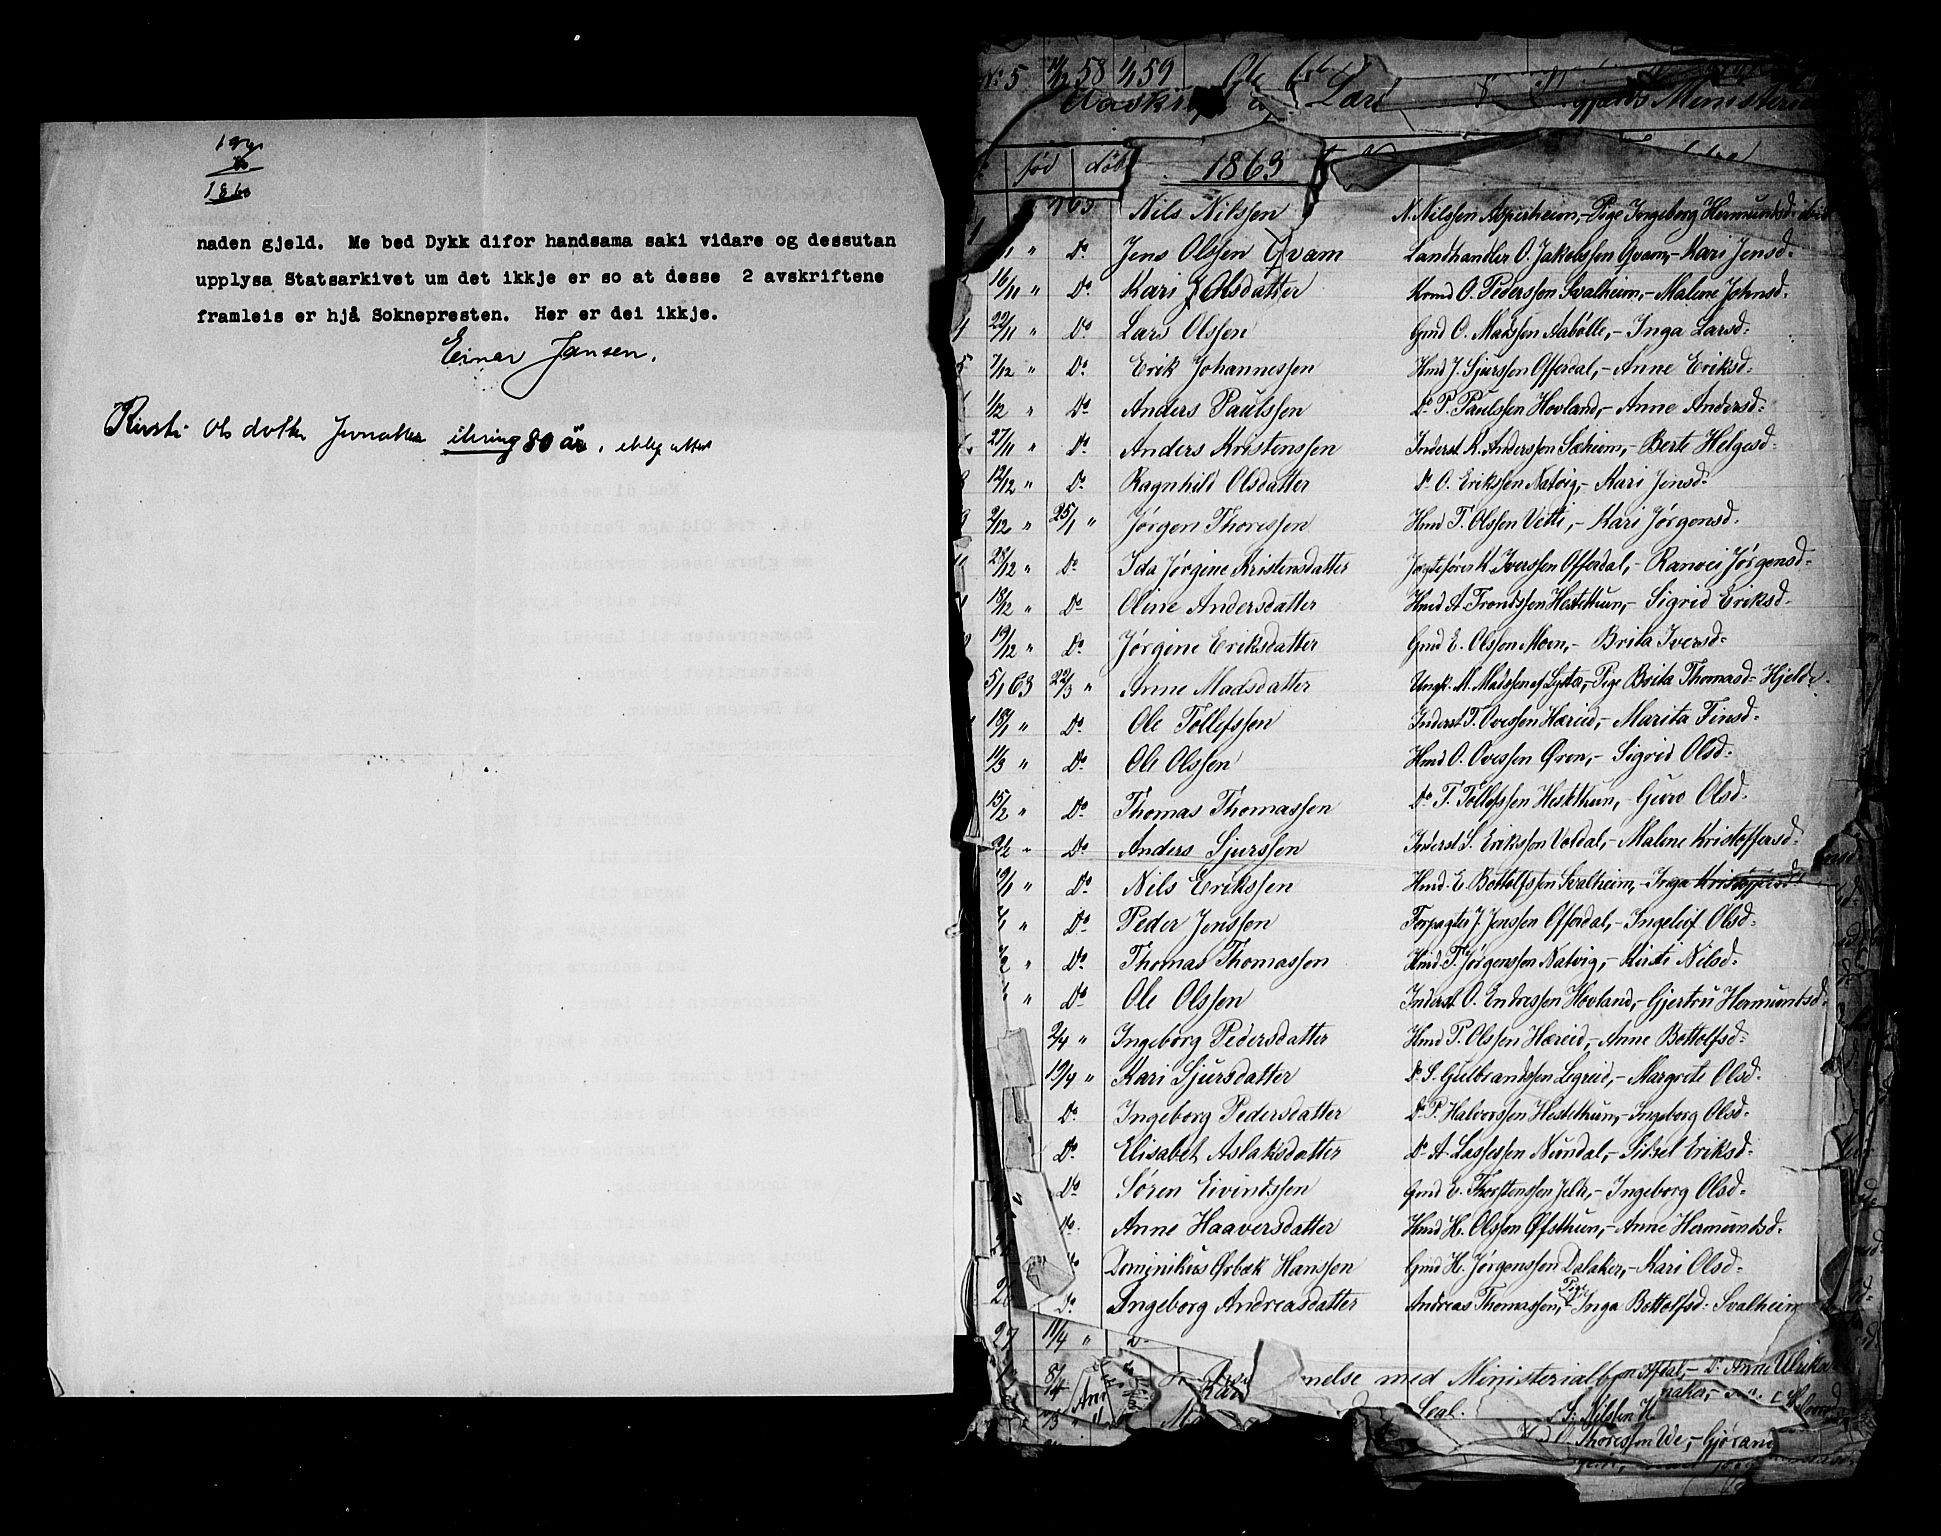 1940
80
1860
naden gjeld. Me bed Dykk difor handsama saki vidare og dessutan
upplysa Statsarkivet um det ikkje er so at desse 2 avskriftene
framleis er hjå Soknepresten. Her er dei ikkje.
Einar Jansen.
Kirsti Olsdotter ikring 80 år,
No 5 58 1/1 59 Ole
Lær Ministeria
fød døbt 1863
63 Nils Nilssen N. Nilssen Asperheim,- Pige Ingeborg Hermundsd-
" Do Jens Olssen Qvam Landhandler O. Jakobssen Qvam,- Kari Jensd-
16/11 " Do Kari Olsdatter O. Pederssen Svalheim,- Malene Johnsd-
4 22/11 " Do Lars Olssen Gmd O. Madssen Aabølle,- Inga Larsd-
5 7/12 " Do Erik Johannessen Hmd J. Sjurssen Offerdal,- Anne Eriksd-
1/2 " Do Anders Paulssen Do P. Paulssen Hovland,- Anne Andersd-
27/11 " Do Anders Kristenssen Inderst K. Anderssen Sæheim,- Berte Helgesd-
8 12/12 " Do Ragnhild Olsdatter Do O. Erikssen Natvig,- Kari Jensd-
9 2/12 " 25/1 " Jørgen Thoressen Hmd T. Olssen Vetti,- Kari Jørgensd-
28/12 " Do Ida Jørgine Kristensdatter Jægtefører K. Iverssen Offerdal,- Ranvei Jørgensd-
18/12 " Do Oline Andersdatter Hmd A. Trondssen Hestethun,- Sigrid Eriksd-
19/12 " Do Jørgine Eriksdatter Gmd E. Olssen Moen,- Brita Iversd-
5/1 63 22/3 " Anne Madsdatter Ungk. M. Madssen af Lyster, Pige Brita Thomasd- Hjelde
18/1 " Do Ole Tollefssen Inderst T. Ovessen Hæreid,- Marita Finsd-
11/3 " Do Ole Olssen Hmd O. Ovessen Øren,- Sigrid Olsd-
15/2 " Do Thomas Thomassen Do T. Tollefssen Hestethun,- Guro Olsd-
2/2 " Do Anders Sjurssen Inderst S. Erikssen Voldal,- Malene Kristoffersd-
19/1 " Do Nils Erikssen Hmd E. Bottolfssen Svalheim,- Inga Kristoffersd
" Do Peder Jenssen Forpagter J. Jenssen Offerdal,- Ingeleif Olsd-
" Do Thomas Thomassen Hmd T. Jørgenssen Natvig,- Kirsti Nilsd-
" Do Ole Olssen Inderst O. Endressen Hovland,- Gjertru Hermundsd-
2/4 " Ingeborg Pedersdatter Hmd P. Olssen Hæreid,- Anne Bottolfsd-
19/4 " Kari Sjursdatter Do S. Gulbrandssen Legreid,- Margrete Olsd-
Do Ingeborg Pedersdatter Do P. Halvorssen Hestethun,- Ingeborg Olsd-
Do Elisabet Aslaksdatter Do A. Lassessen Nundal,- Sidsel Eriksd-
Do Søren Eivindssen Gmd E. Thorstenssen Jelle,- Ingeborg Olsd-
Do Anne Haaversdatter Hmd H. Olssen Øfsthun,- Anne Hermundsd-
Do Dominikus Ørbæk Hanssen Gmd H. Jørgenssen Dalaker,- Kari Olsd-
Do Ingeborg Andreasdatter Andreas Thomassen, Pige Inga Bottolfsd- Svalheim
27 11/4 "
8/4 nelse med Ministerialb Anne Ulrika
Seal. S. Nilssen
Thoressen We,- Gjøran